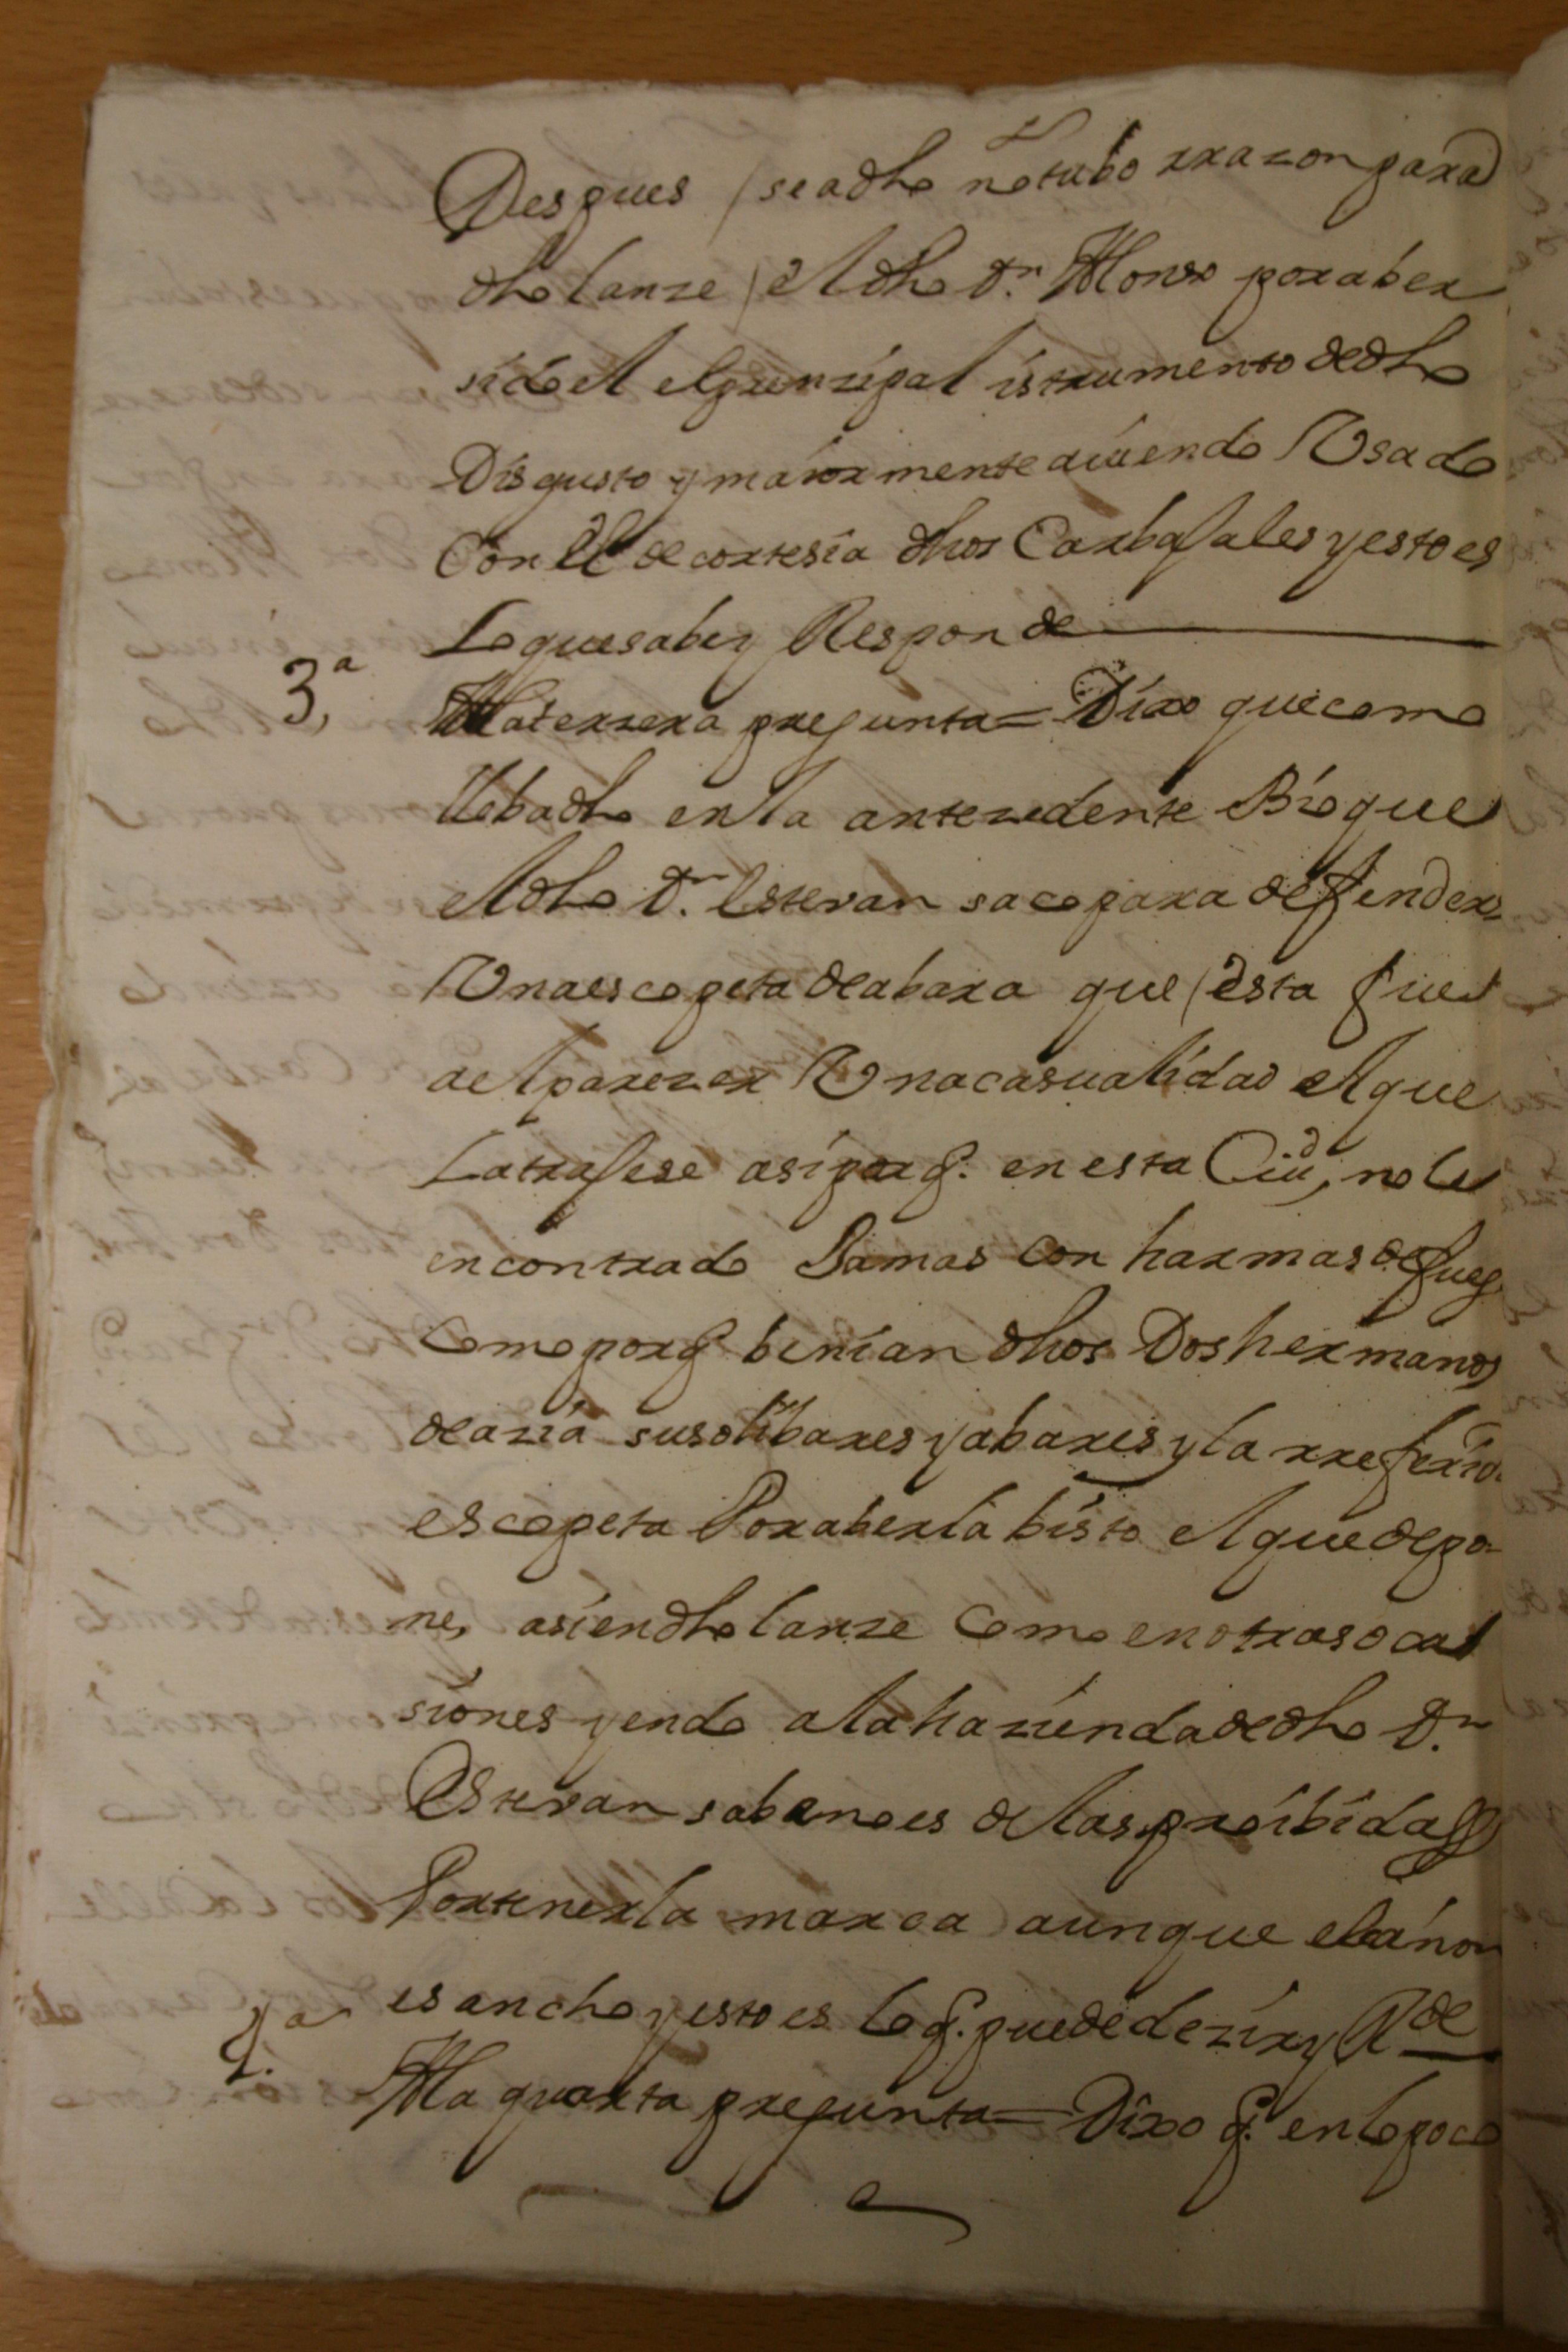 Despues se a dho no tubo rrazon para
dho lanze el dho Dn. Alonso por aber
sido el el prinzipal istrumento de dho
Disgusto y maiormente aviendo Usado
Con el de cortesia dhos Carbajales y esto es
Lo que sabe y Responde
3.a A la terzera pregunta = Dixo que como
lleba dho en la antezedente Bio que
el dho Dn. Estevan saco para defender
Una escopeta de a bara que esta fue
al parezer Una casualidad el que
La trajese asi porq. en esta Ciud, no le
encontrado Jamas con harmas de fueg
Como porq benian dhos Dos hermanos
de azia sus olibares y abares y la rreferid
escopeta Por aberla bisto el que depo-
ne, asi en dho lanze Como en otras oca
siones yendo a la hazienda de dho Dn
Estevan sabe no es de las proibidas
Por tener la marca aunque el cánon
es ancho y esto es lo q. puede dezir y Rde
4.a A la quarta pregunta = Dixo q. en lo poco